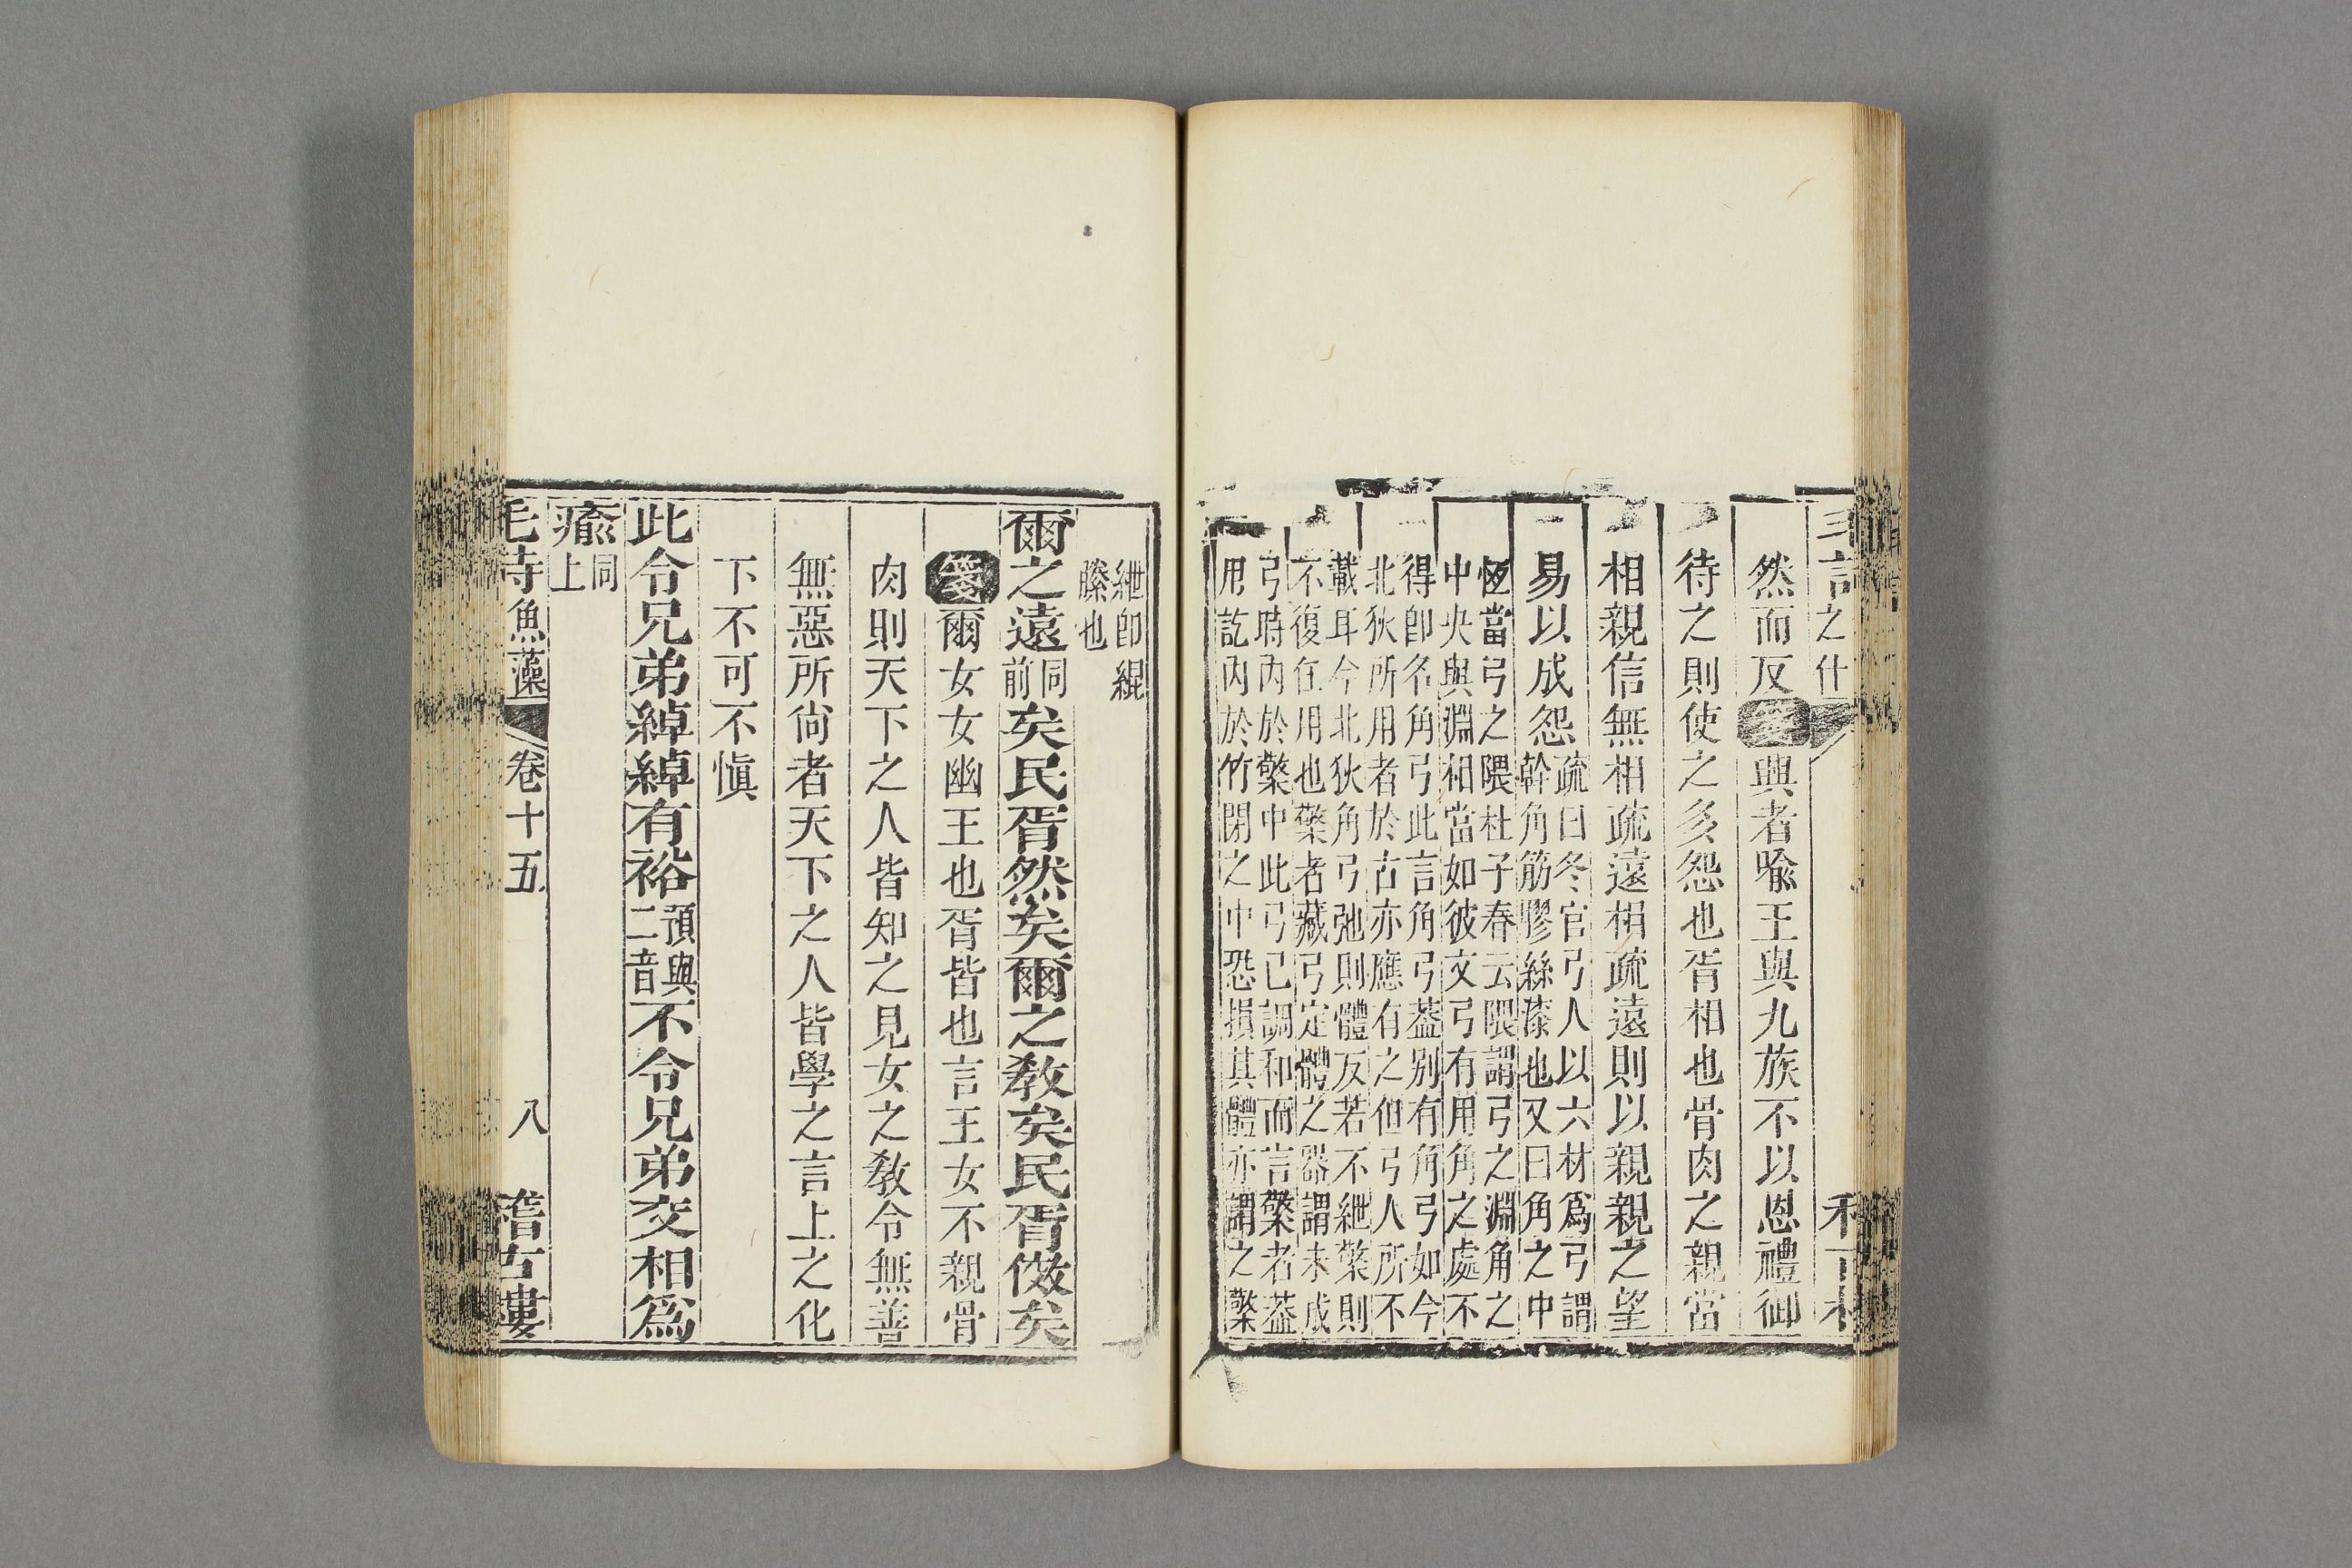 之什
然而反箋興者喻王與九族不以恩禮御
待之則使之多怨也胥相也骨肉之親當
相親信無相疏遠相疏遠則以親親之望
易以成怨
疏曰冬官弓人以六材爲弓謂
幹角筋膠絲漆也又曰角之中
恆當弓之隈杜子春云隈謂弓之淵角之
中央與淵相當如彼文弓有用角之處不
得卽名角弓此言角弓葢别有角弓如今
北狄所用者於古亦應有之但弓人所不
載耳今北狄角弓弛則體反若不紲檠則
不復任用也檠者藏弓定體之器謂未成
弓時內於檠中此弓已調和而言檠者葢
用訖內於竹閉之中恐損其體亦謂之檠
紲卽緄
縢也
爾之遠同前矣民胥然矣爾之敎矣民胥傚矣
箋爾女女幽王也胥皆也言王女不親骨
肉則天下之人皆知之見女之敎令無善
無惡所尙者天下之人皆學之言上之化
下不可不愼
此令兄弟綽綽有裕預與二音不令兄弟交相爲
瘉同上
毛詩魚藻 卷十五 八 稽古樓